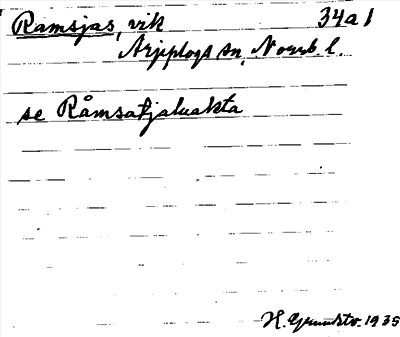 Ramsjas, vik 34a1
Arjeplogs sn, Norrb. l.
se Råmsatjaluakta
1935